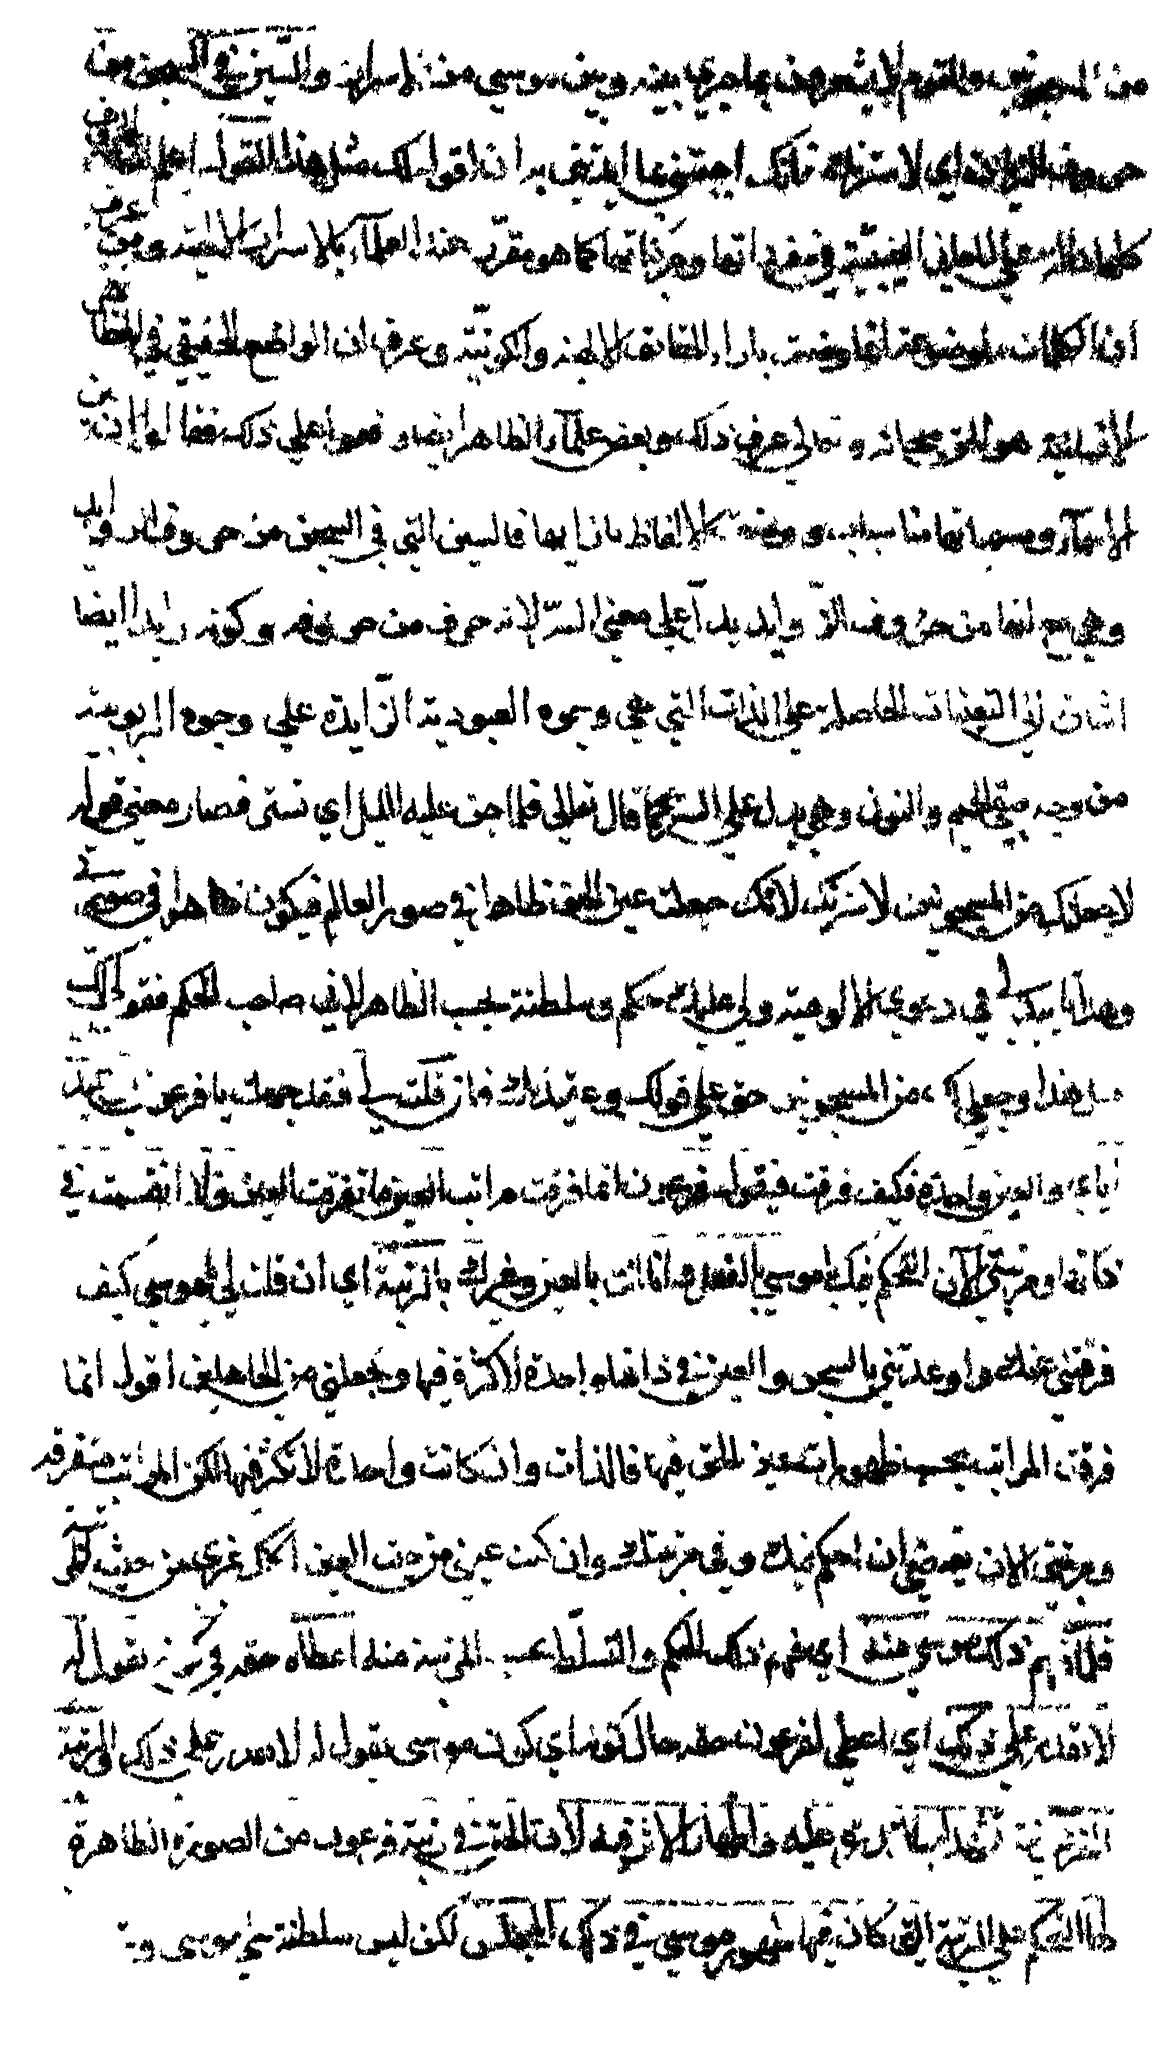 من المسجونين والقوم لا يشعرون بما جري بينه وبين موسي من الاسرار والسين في السجن من
حروف الزوائد اي لاسترنك فانك اجبتني بما ايدتني به ان اقول لك مثل هذا القول اعلم ان الحروف
كلها دالة علي المعاني الغيبية في مفرداتها ومركباتها كما هو مقرر عند العلماء بالاسرار الالهية ومن عرف
ان الكلمات موضوعة بازاء الحقائق الالهية والكونية وعرف ان الواضع الحقيقي في الالفاظ
هو الحق سبحانه وتعالي عرف ذلك وبعض علماء الظاهر ايضا ذهبوا علي ذلك فقالوا ان بين
الاسماء ومسمياتها مناسبات ووضعت الالفاظ بازايها فالسين التي في السجن من حروف الزوايد
وهي مع انها من حروف الزوايد يدل علي معني الستر لانه حرف من حروفه وكونه زايدا ايضا
اشارة الي التعينات الحاصلة علي الذات التي هي وجوه العبودية الزايدة علي وجوه الربوبية
من وجه بقي الجيم والنون وهي يدل علي الستر كما قال تعالي فلما جن عليه الليل اي تستر فصار معني قوله
لاجعلنك من المسجونين لاسترنك لانك جعلت عين الحق ظاهرا في صور العالم فيكون ظاهرا في صورتي
وهذا تاييد لي في دعوي الالوهية ولي عليك حكم وسلطنة بحسب الظاهر لاني صاحب الحكم فقولي لك
مثل هذا وجعلي لك من المسجونين حق علي قولك وعقيدتك فان قلت لي فقد جهلت يا فرعون بوعيدك
اياي والعين واحدة فكيف فرقت فيقول فرعون انما فرقت مراتب العين ما تفرقت العين ولا انقسمت في
ذاتها ومرتبتي الان التحكم فيك يا موسي بالفعل وانا انت بالعين وغيرك بالرتبة اي ان قلت لي يا موسي كيف
فرقتني عنك واوعدتني بالسجن والعين في ذاتها واحدة لا كثرة فيها وجعلتني من الجاهلين اقول انما
فرقت المراتب بحسب ظهورات عين الحق فيها فالذات وان كانت واحدة لا تكثر فيها لكن المراتب متفرقة
ومرتبتي الان يقتضي ان احكم فيك وفي مرتبتك وان كنت عيني من حيث العين لكنك غيري من حيث المرتبة
فلما فهم ذلك موسي منه اي فهم ذلك الحكم والتسلط بحسب المرتبة منه اعطاه حقه في كونه يقول له
لا تقدر علي ذلك اي اعطي لفرعون حقه حال كونه اي كون موسي يقول له لا تقدر علي ذلك والمرتبة
الفرعونية تشهد له بالقدرة عليه واظهار الاثر فيه لان الحق في رتبة فرعون من الصورة الظاهرة
لها التحكم علي المرتبة التي كان فيها ظهور موسي في ذلك المجلس لكن ليس سلطنة علي موسي و